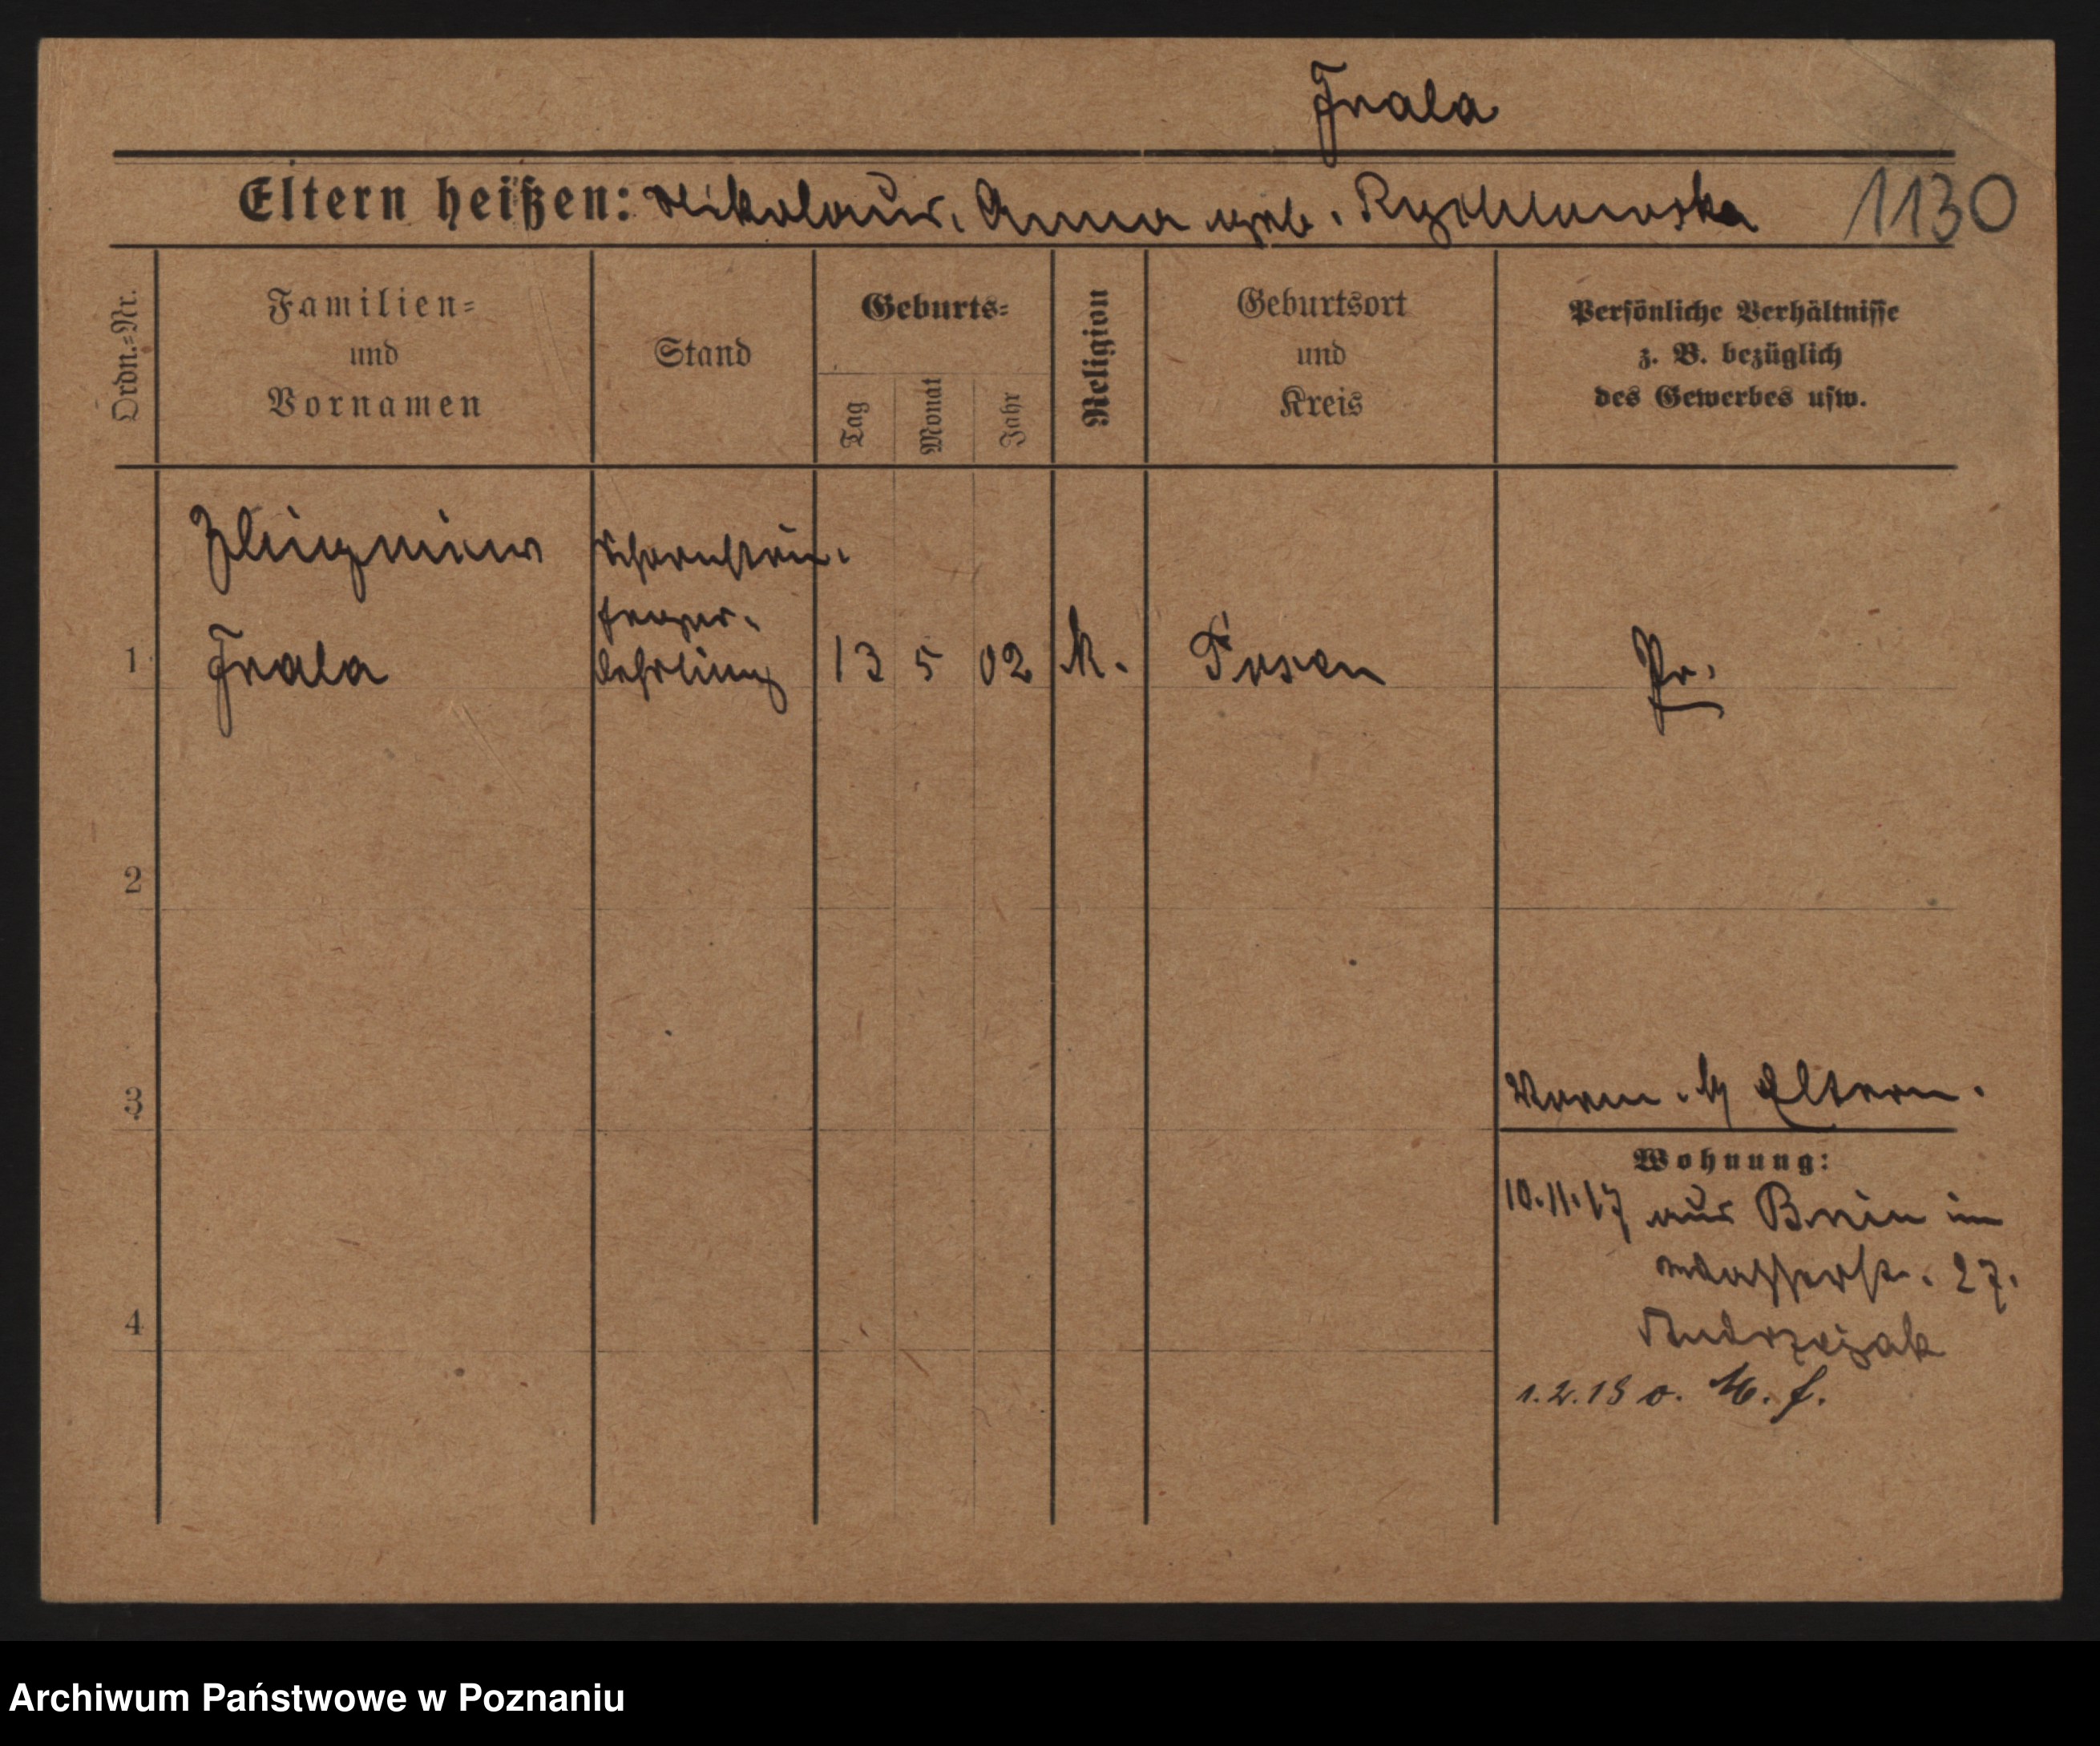 Frala
Eltern heißen: Nikolaus, Anna geb. Rychlewska 1130
Ordn.-Nr.
Familien-
und
Vornamen
Stand
Geburts-
Tag
Monat
Jahr
Religion
Geburtsort
und
Kreis
Persönliche Verhältnisse
z. B. bezüglich
des Gewerbes usw.
Zbigniew
Schornstein-
feger-
1 Frala lehrling 13 5 02 k. Posen Pr.
2
3
Eltern.
Wohnung:
10.11.17 aus Bnin im
Wasserstr. 27.
4
Andrzejak
1.2.18
Archiwum Państwowe w Poznaniu